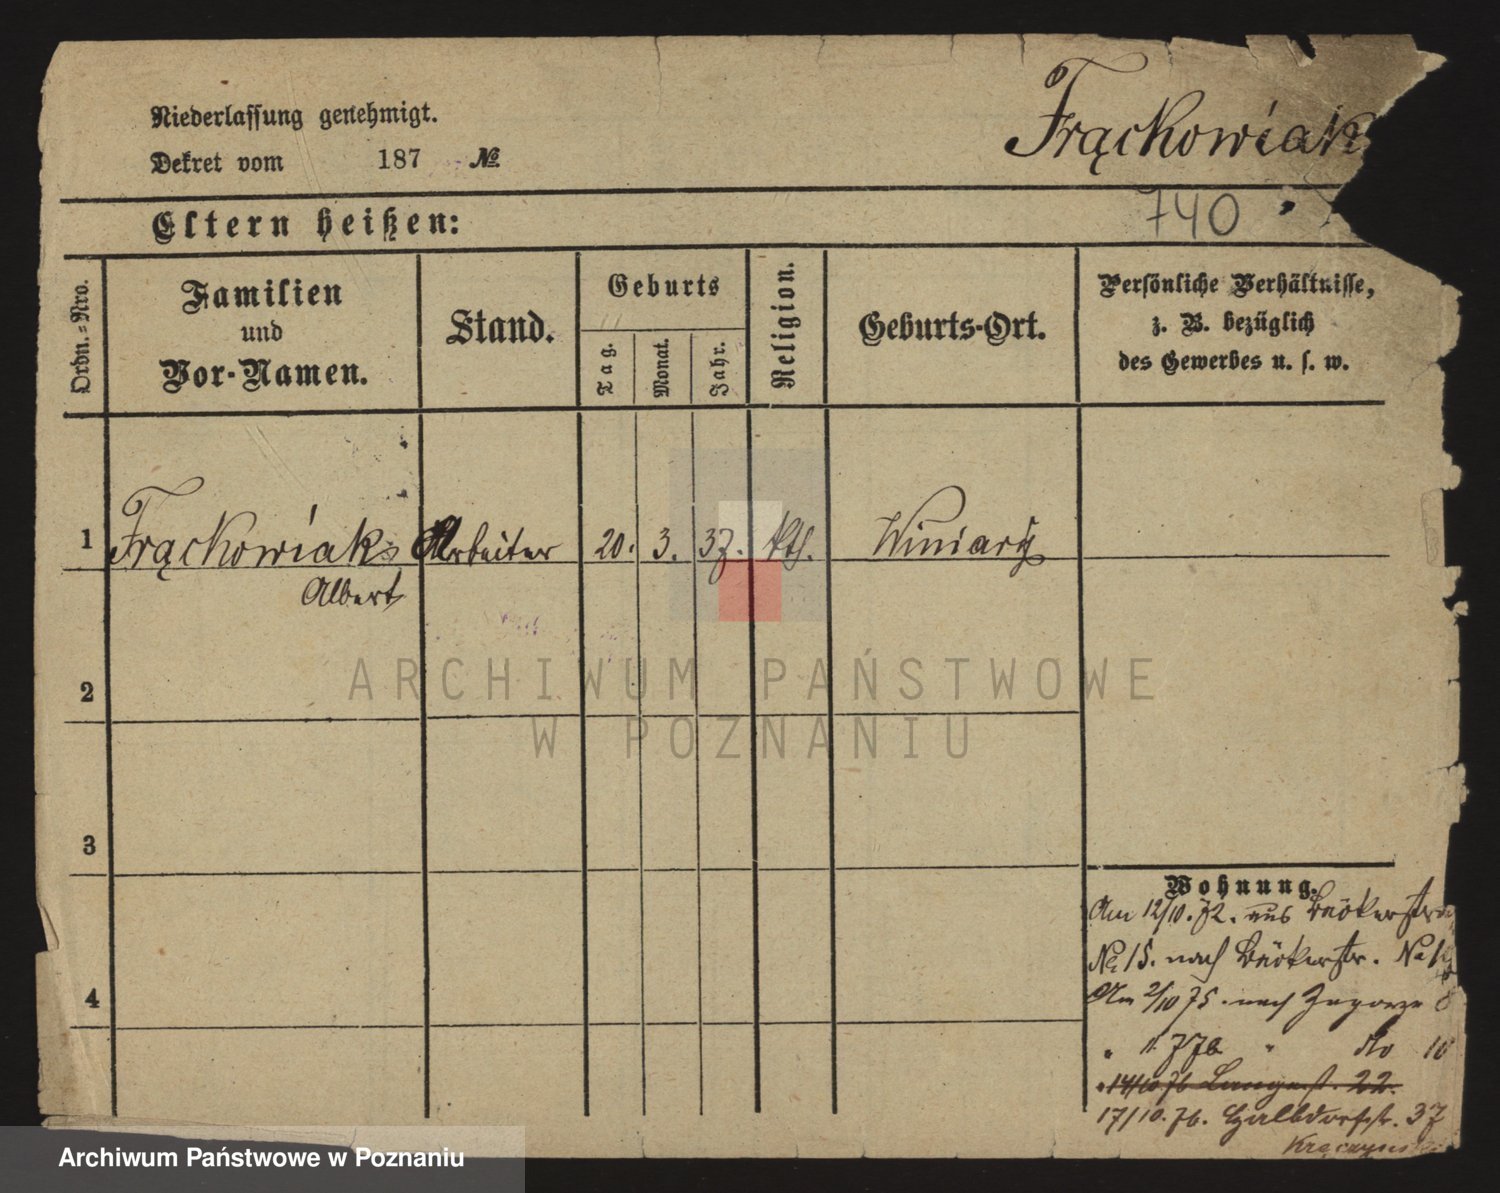 Niederlassung genehmigt.
Dekret vom 187 №
Frąckowiak
740
Eltern heißen:
Ordn.=Nro.
Familien
und
Vor-Namen.
Stand.
Geburts
Tag.
Monat.
Jahr.
Religion.
Geburts-Ort.
Persönliche Verhältnisse,
z. B. bezüglich
des Gewerbes u. s. w.
1 Frąckowiak Arbeiter 20. 3. 37. kth. Winiary
Albert
2
3
4
Wohnung.
Am 12/10. 72. aus Bäckerstr
No 15. nach Bäckerstr. No
Am 2/10 75. nach Zagorze 8
" 11. 7 76 " do 10
14/10 76 Langest. 22.
17/10. 76. Halbdorfstr. 37
ARCHIWUM PAŃSTWOWE
W POZNANIU
Archiwum Państwowe w Poznaniu